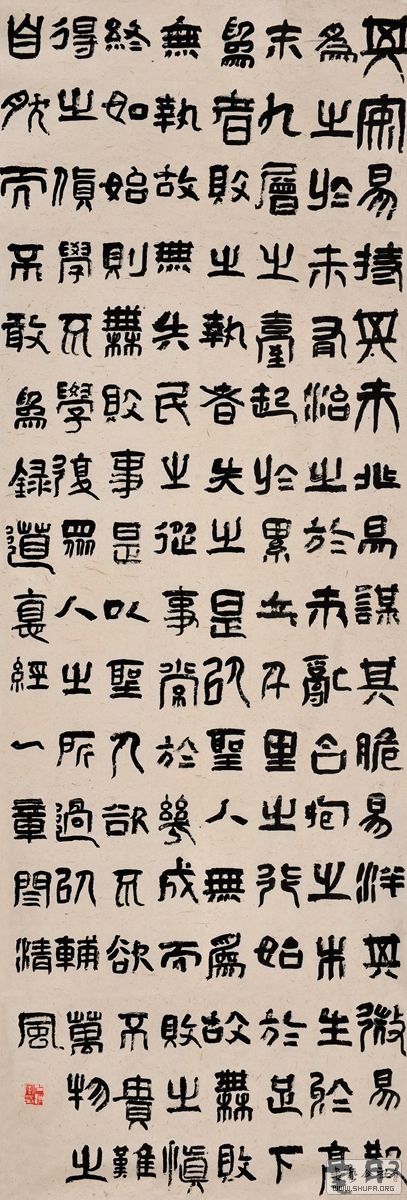 其安易持其未兆易謀其脆易泮其微易散
為之於未有治之於未亂合抱之木生於毫
末九層之臺起於累土千里之行始於足下
為者敗之執者失之是以聖人無為故無敗
無執故無失民之從事常於幾成而敗之慎
終如始則無敗事是以聖人欲不欲不貴難
得之貨學不學復眾人之所過以輔萬物之
自然而不敢為錄道悳經一章閆清風
WWW.SHUFA.ORG